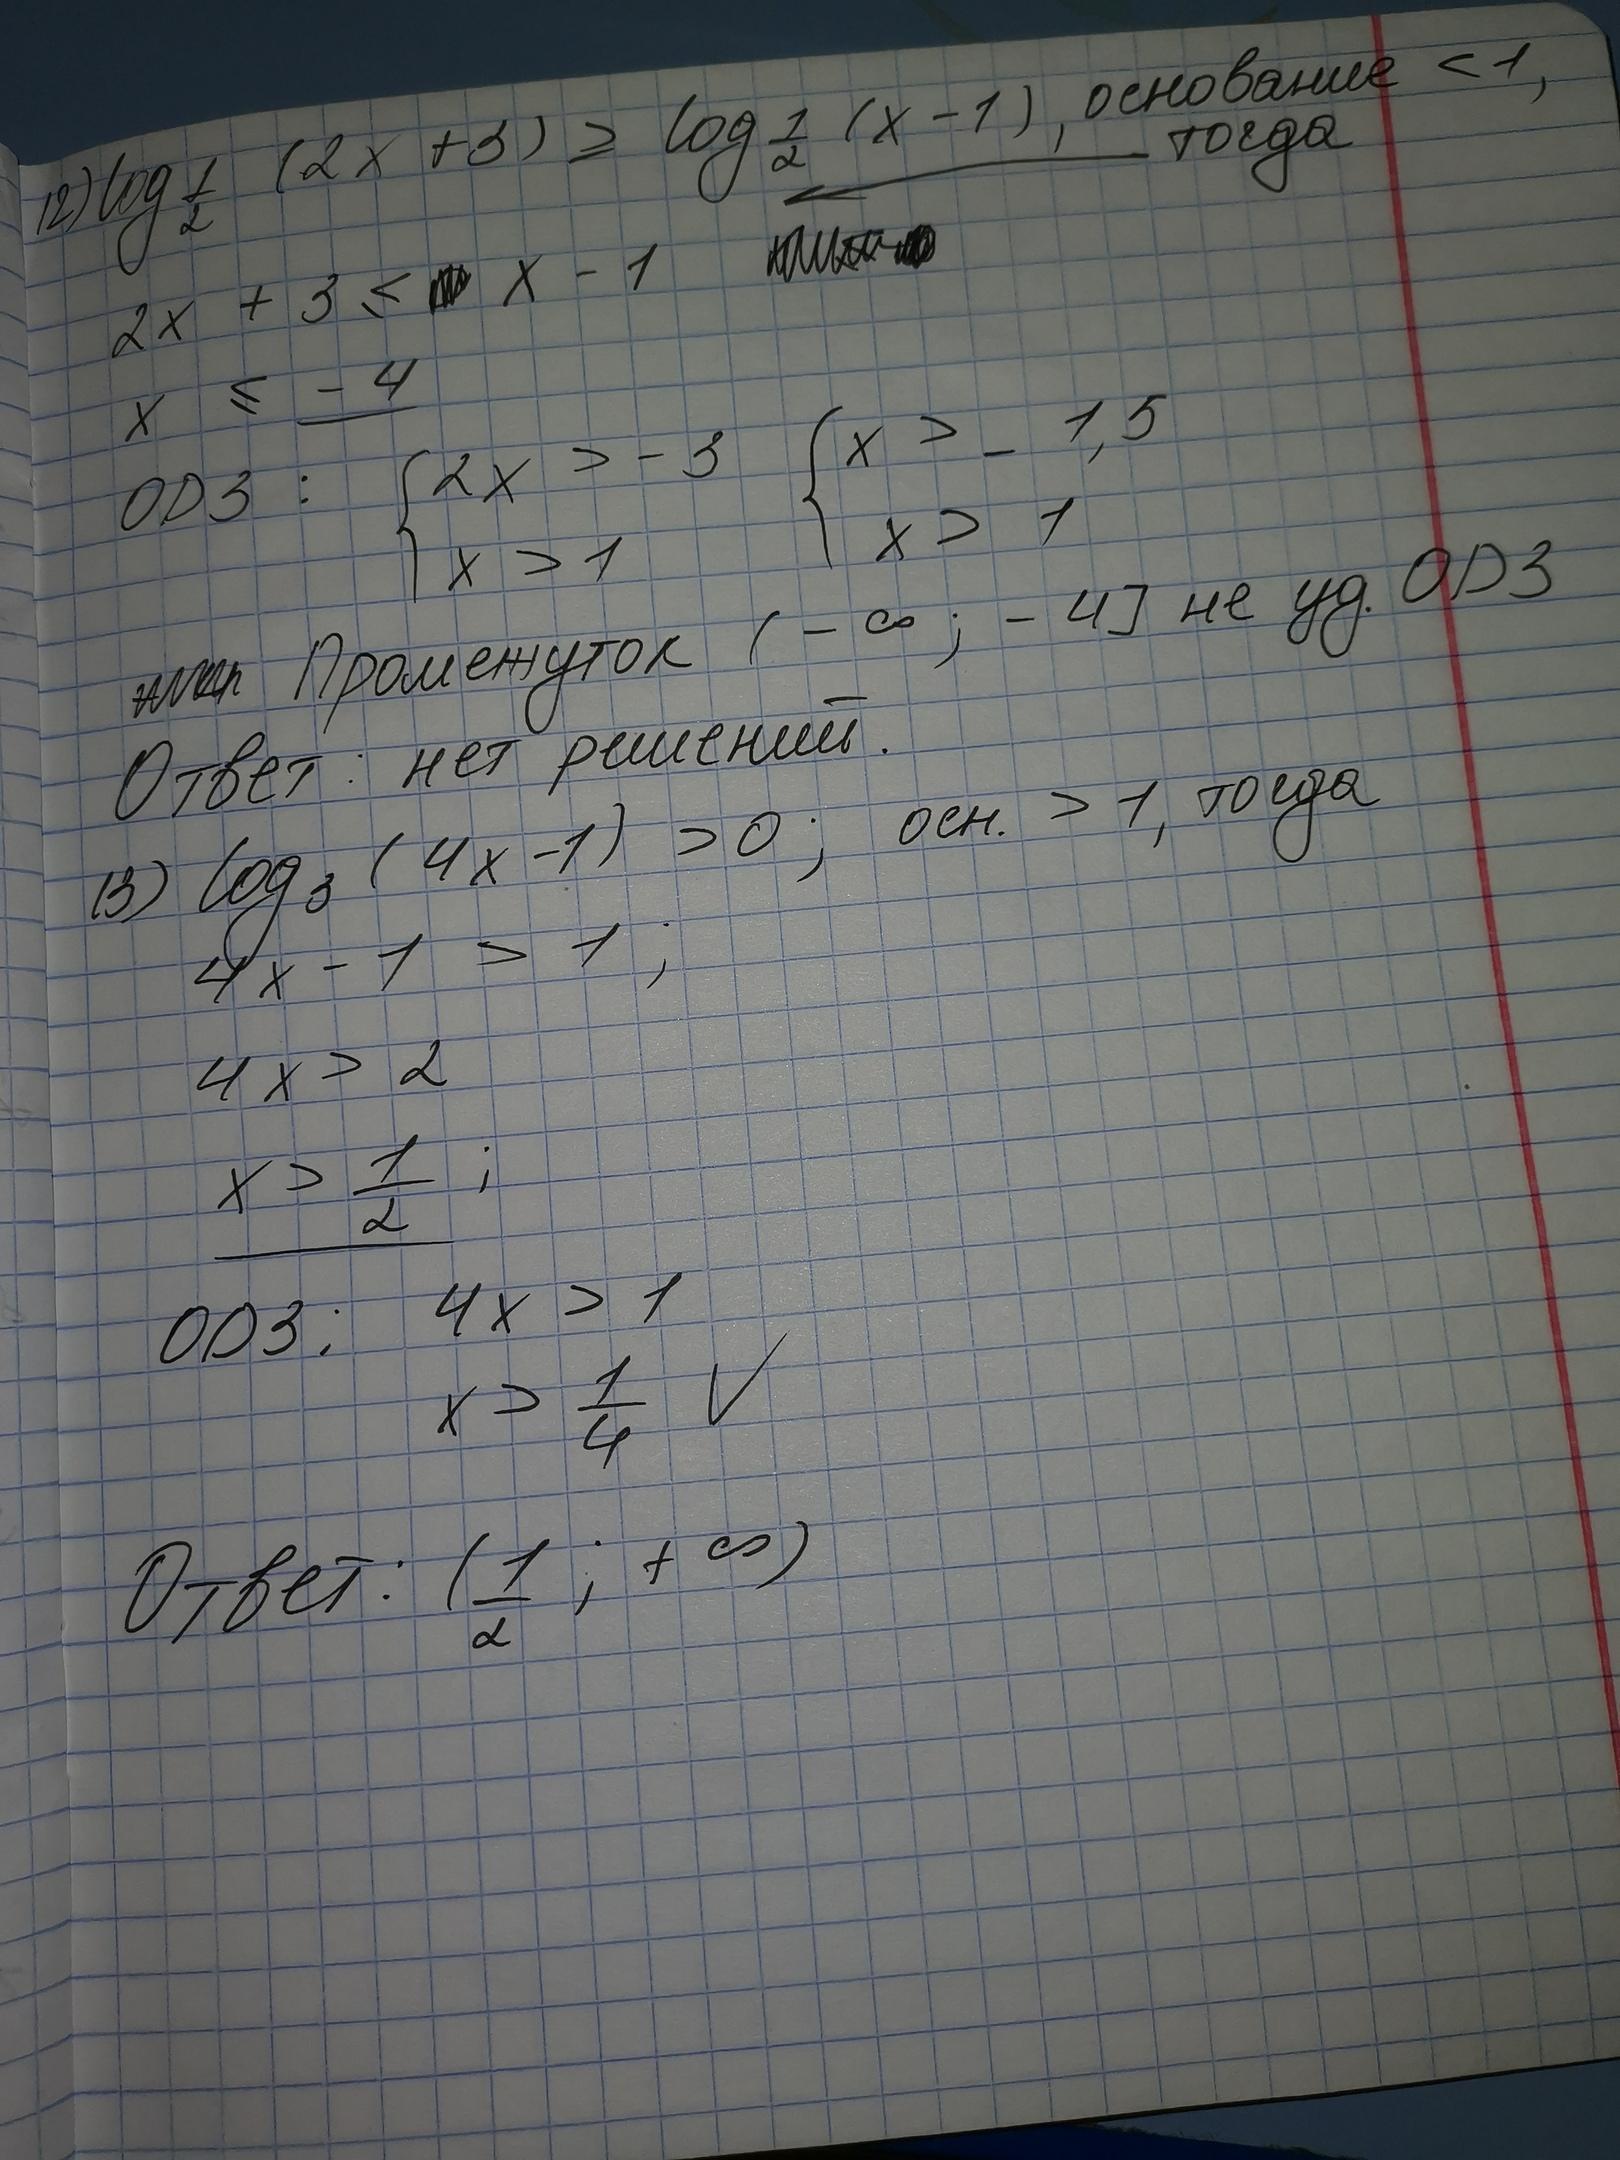 12) log 1/2 (2x + 3) ≥ log 1/2 (x - 1), основание < 1,
тогда
2x + 3 ≤ x - 1
x ≤ -4
ОДЗ : { 2x > -3 { x > -1,5
x > 1 x > 1
Промежуток (-∞; -4] не уд. ОДЗ
Ответ: нет решений.
13) log₃ (4x - 1) > 0; осн. > 1, тогда
4x - 1 > 1;
4x > 2
x > 1/2;
ОДЗ: 4x > 1
x > 1/4 ✓
Ответ: (1/2; +∞)